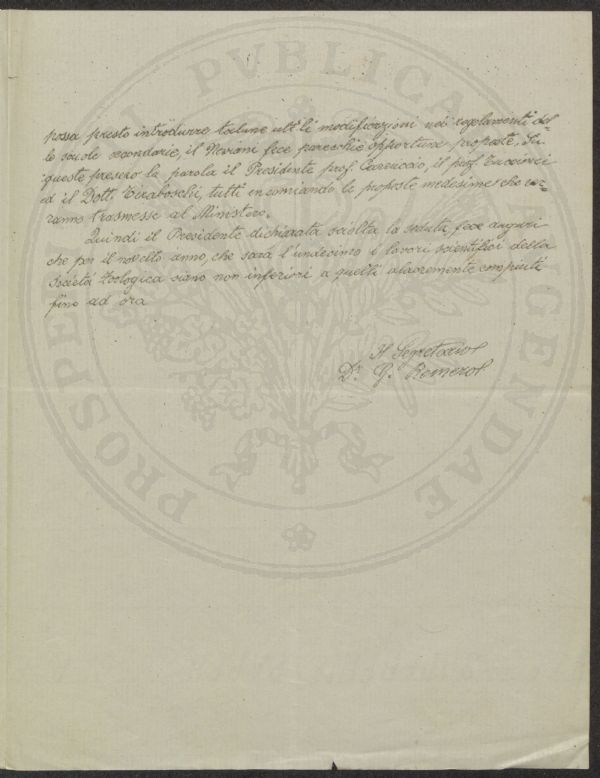 possa presto introdurre talune utili modificazioni nei regolamenti del=
le scuole secondarie, il Neviani fece parecchie opportune proposte. Su
queste presero la parola il Presidente prof. Carruccio, il prof.
ed il Dott. Tiraboschi, tutti encomiando le proposte medesime che ver=
ranno trasmesse al Ministero.
Quindi il Presidente dichiarata sciolta la seduta fece auguri
che per il nuovo anno, che sarà l'undecimo i lavori scientifici della
Società Zoologica siano non inferiori a quelli alacremente compiuti
fino ad ora
Il Segretario
Dr. G. Romero
PROSPERITATI PVBLICAE AVGENDAE